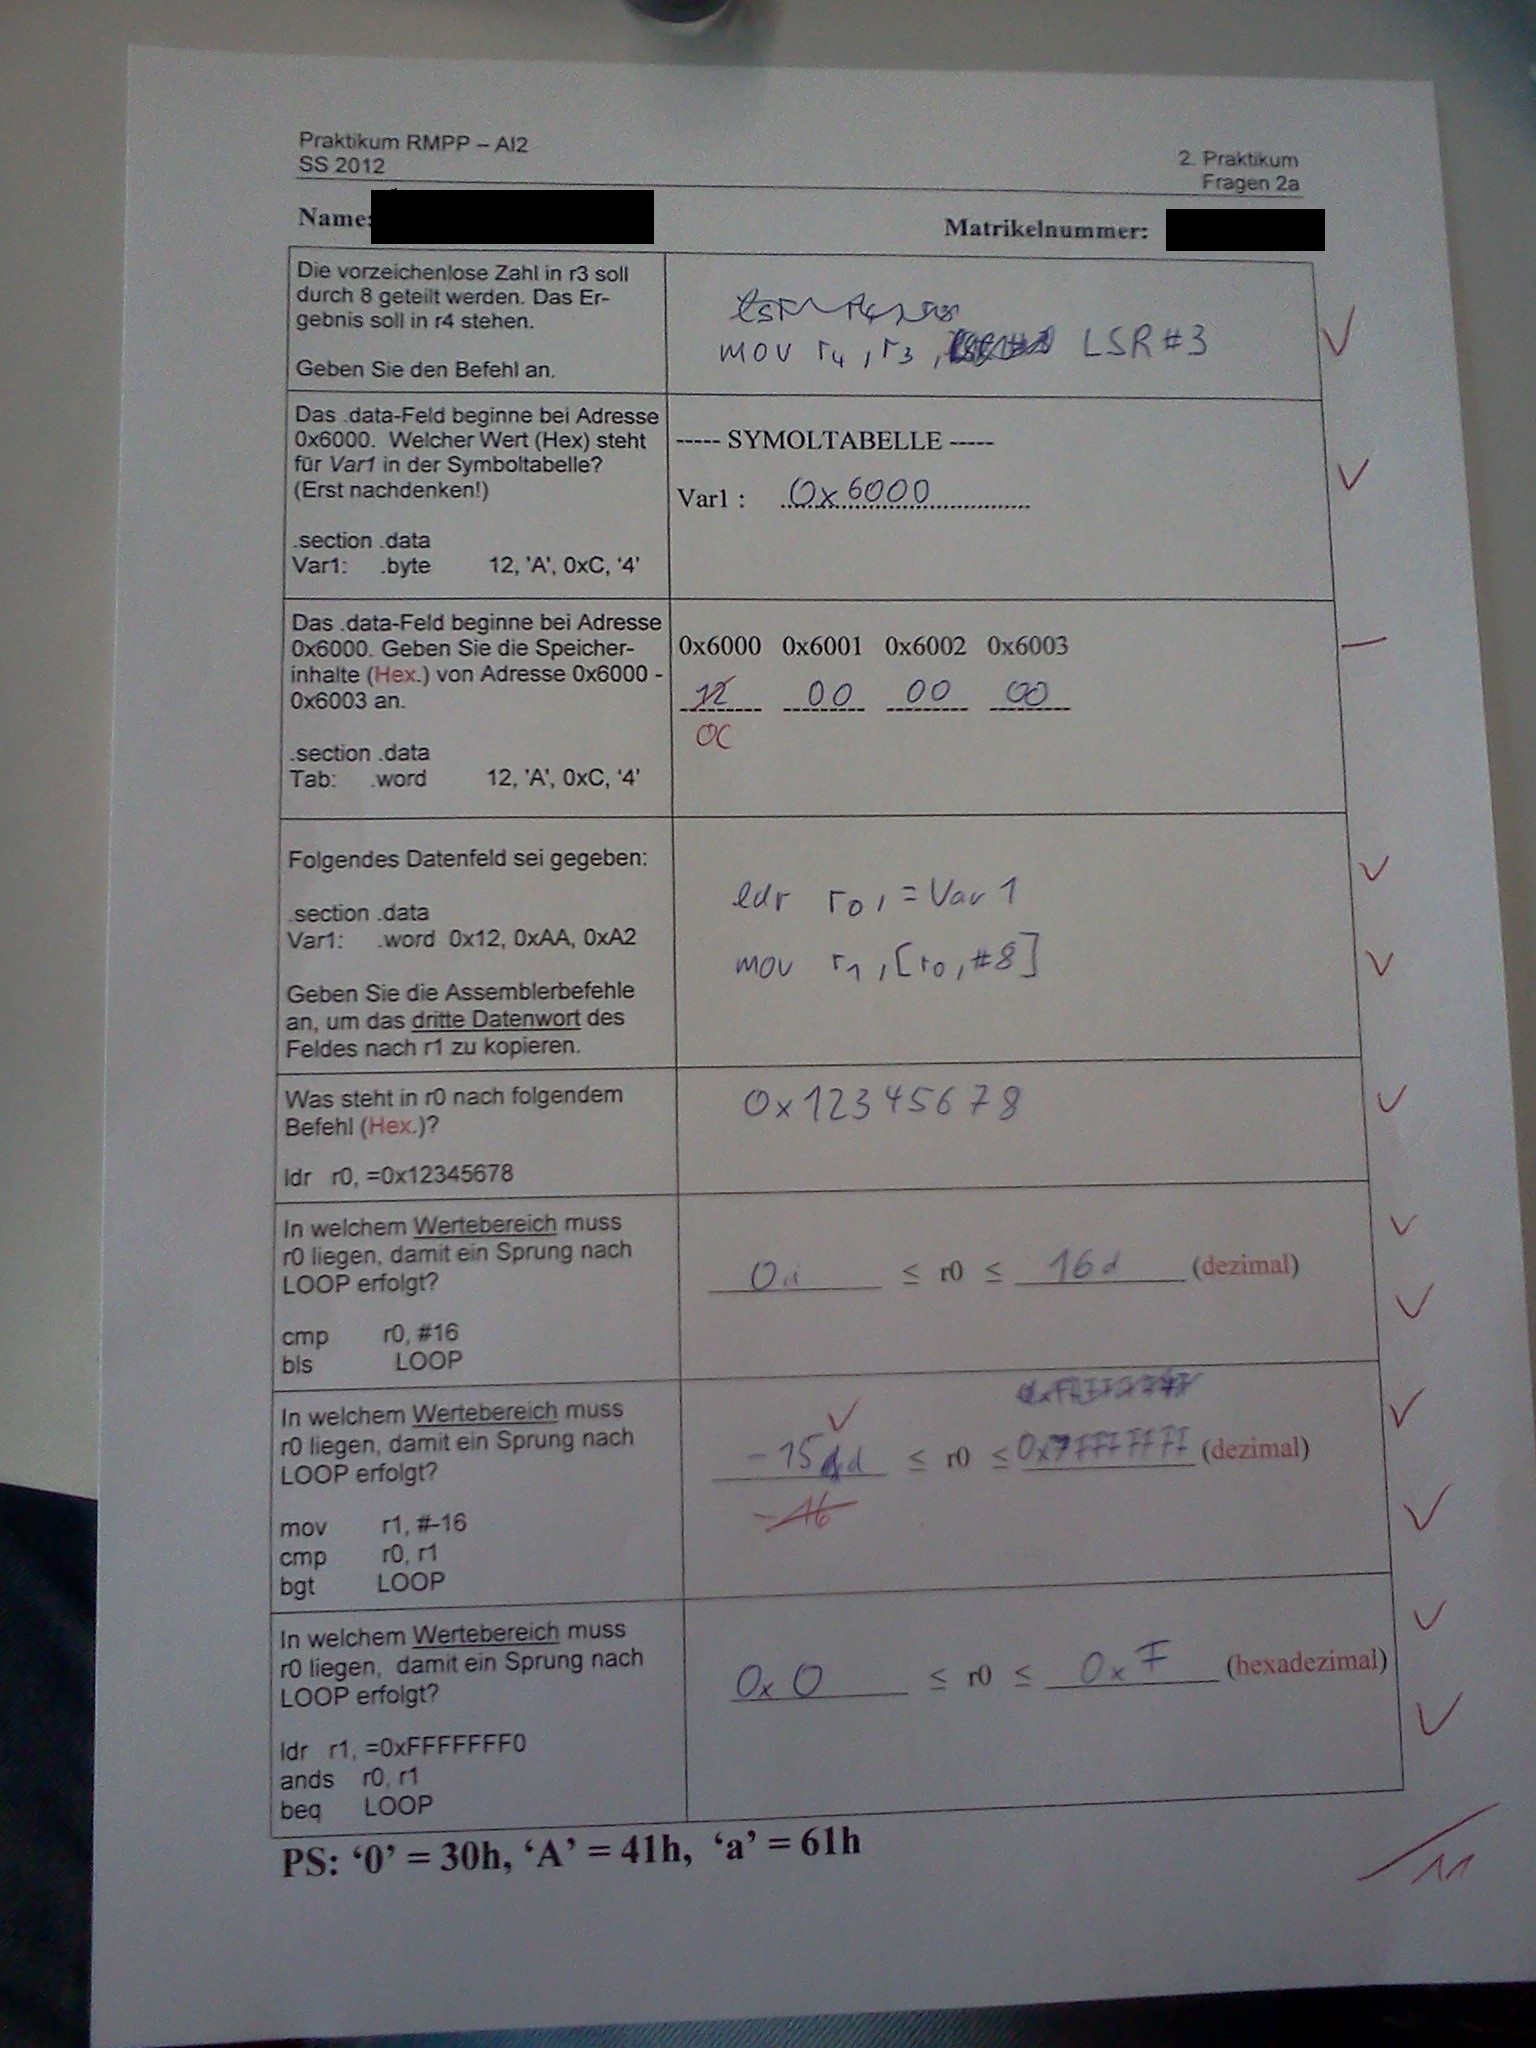 Praktikum RMPP – AI2
SS 2012
2. Praktikum
Fragen 2a
Name:
Matrikelnummer:
Die vorzeichenlose Zahl in r3 soll
durch 8 geteilt werden. Das Er-
gebnis soll in r4 stehen.
Geben Sie den Befehl an.
mov r4, r3, LSR #3
Das .data-Feld beginne bei Adresse
0x6000. Welcher Wert (Hex) steht
für Var1 in der Symboltabelle?
(Erst nachdenken!)
.section .data
Var1: .byte 12, 'A', 0xC, '4'
----- SYMOLTABELLE -----
Var1 : 0x6000
Das .data-Feld beginne bei Adresse
0x6000. Geben Sie die Speicher-
inhalte (Hex.) von Adresse 0x6000 -
0x6003 an.
.section .data
Tab: .word 12, 'A', 0xC, '4'
0x6000 0x6001 0x6002 0x6003
12 00 00 00
0C
Folgendes Datenfeld sei gegeben:
.section .data
Var1: .word 0x12, 0xAA, 0xA2
Geben Sie die Assemblerbefehle
an, um das dritte Datenwort des
Feldes nach r1 zu kopieren.
ldr r0, =Var1
mov r1, [r0, #8]
Was steht in r0 nach folgendem
Befehl (Hex.)?
ldr r0, =0x12345678
0x12345678
In welchem Wertebereich muss
r0 liegen, damit ein Sprung nach
LOOP erfolgt?
cmp r0, #16
bls LOOP
0d ≤ r0 ≤ 16d (dezimal)
In welchem Wertebereich muss
r0 liegen, damit ein Sprung nach
LOOP erfolgt?
mov r1, #-16
cmp r0, r1
bgt LOOP
-15d ≤ r0 ≤ 0x7FFFFFFF (dezimal)
-16
In welchem Wertebereich muss
r0 liegen, damit ein Sprung nach
LOOP erfolgt?
ldr r1, =0xFFFFFFF0
ands r0, r1
beq LOOP
0x0 ≤ r0 ≤ 0xF (hexadezimal)
PS: ‘0’ = 30h, ‘A’ = 41h, ‘a’ = 61h
11